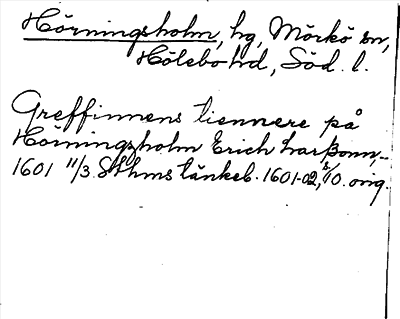 Hörningsholm, hg, Mörkö sn,
Hölebo hd, Söd. l.
Greffinnens tiennere på
Hörningzholm Erich Larßonn,-
1601 11/3. Sthms tänkeb. 1601-02, 10. orig.